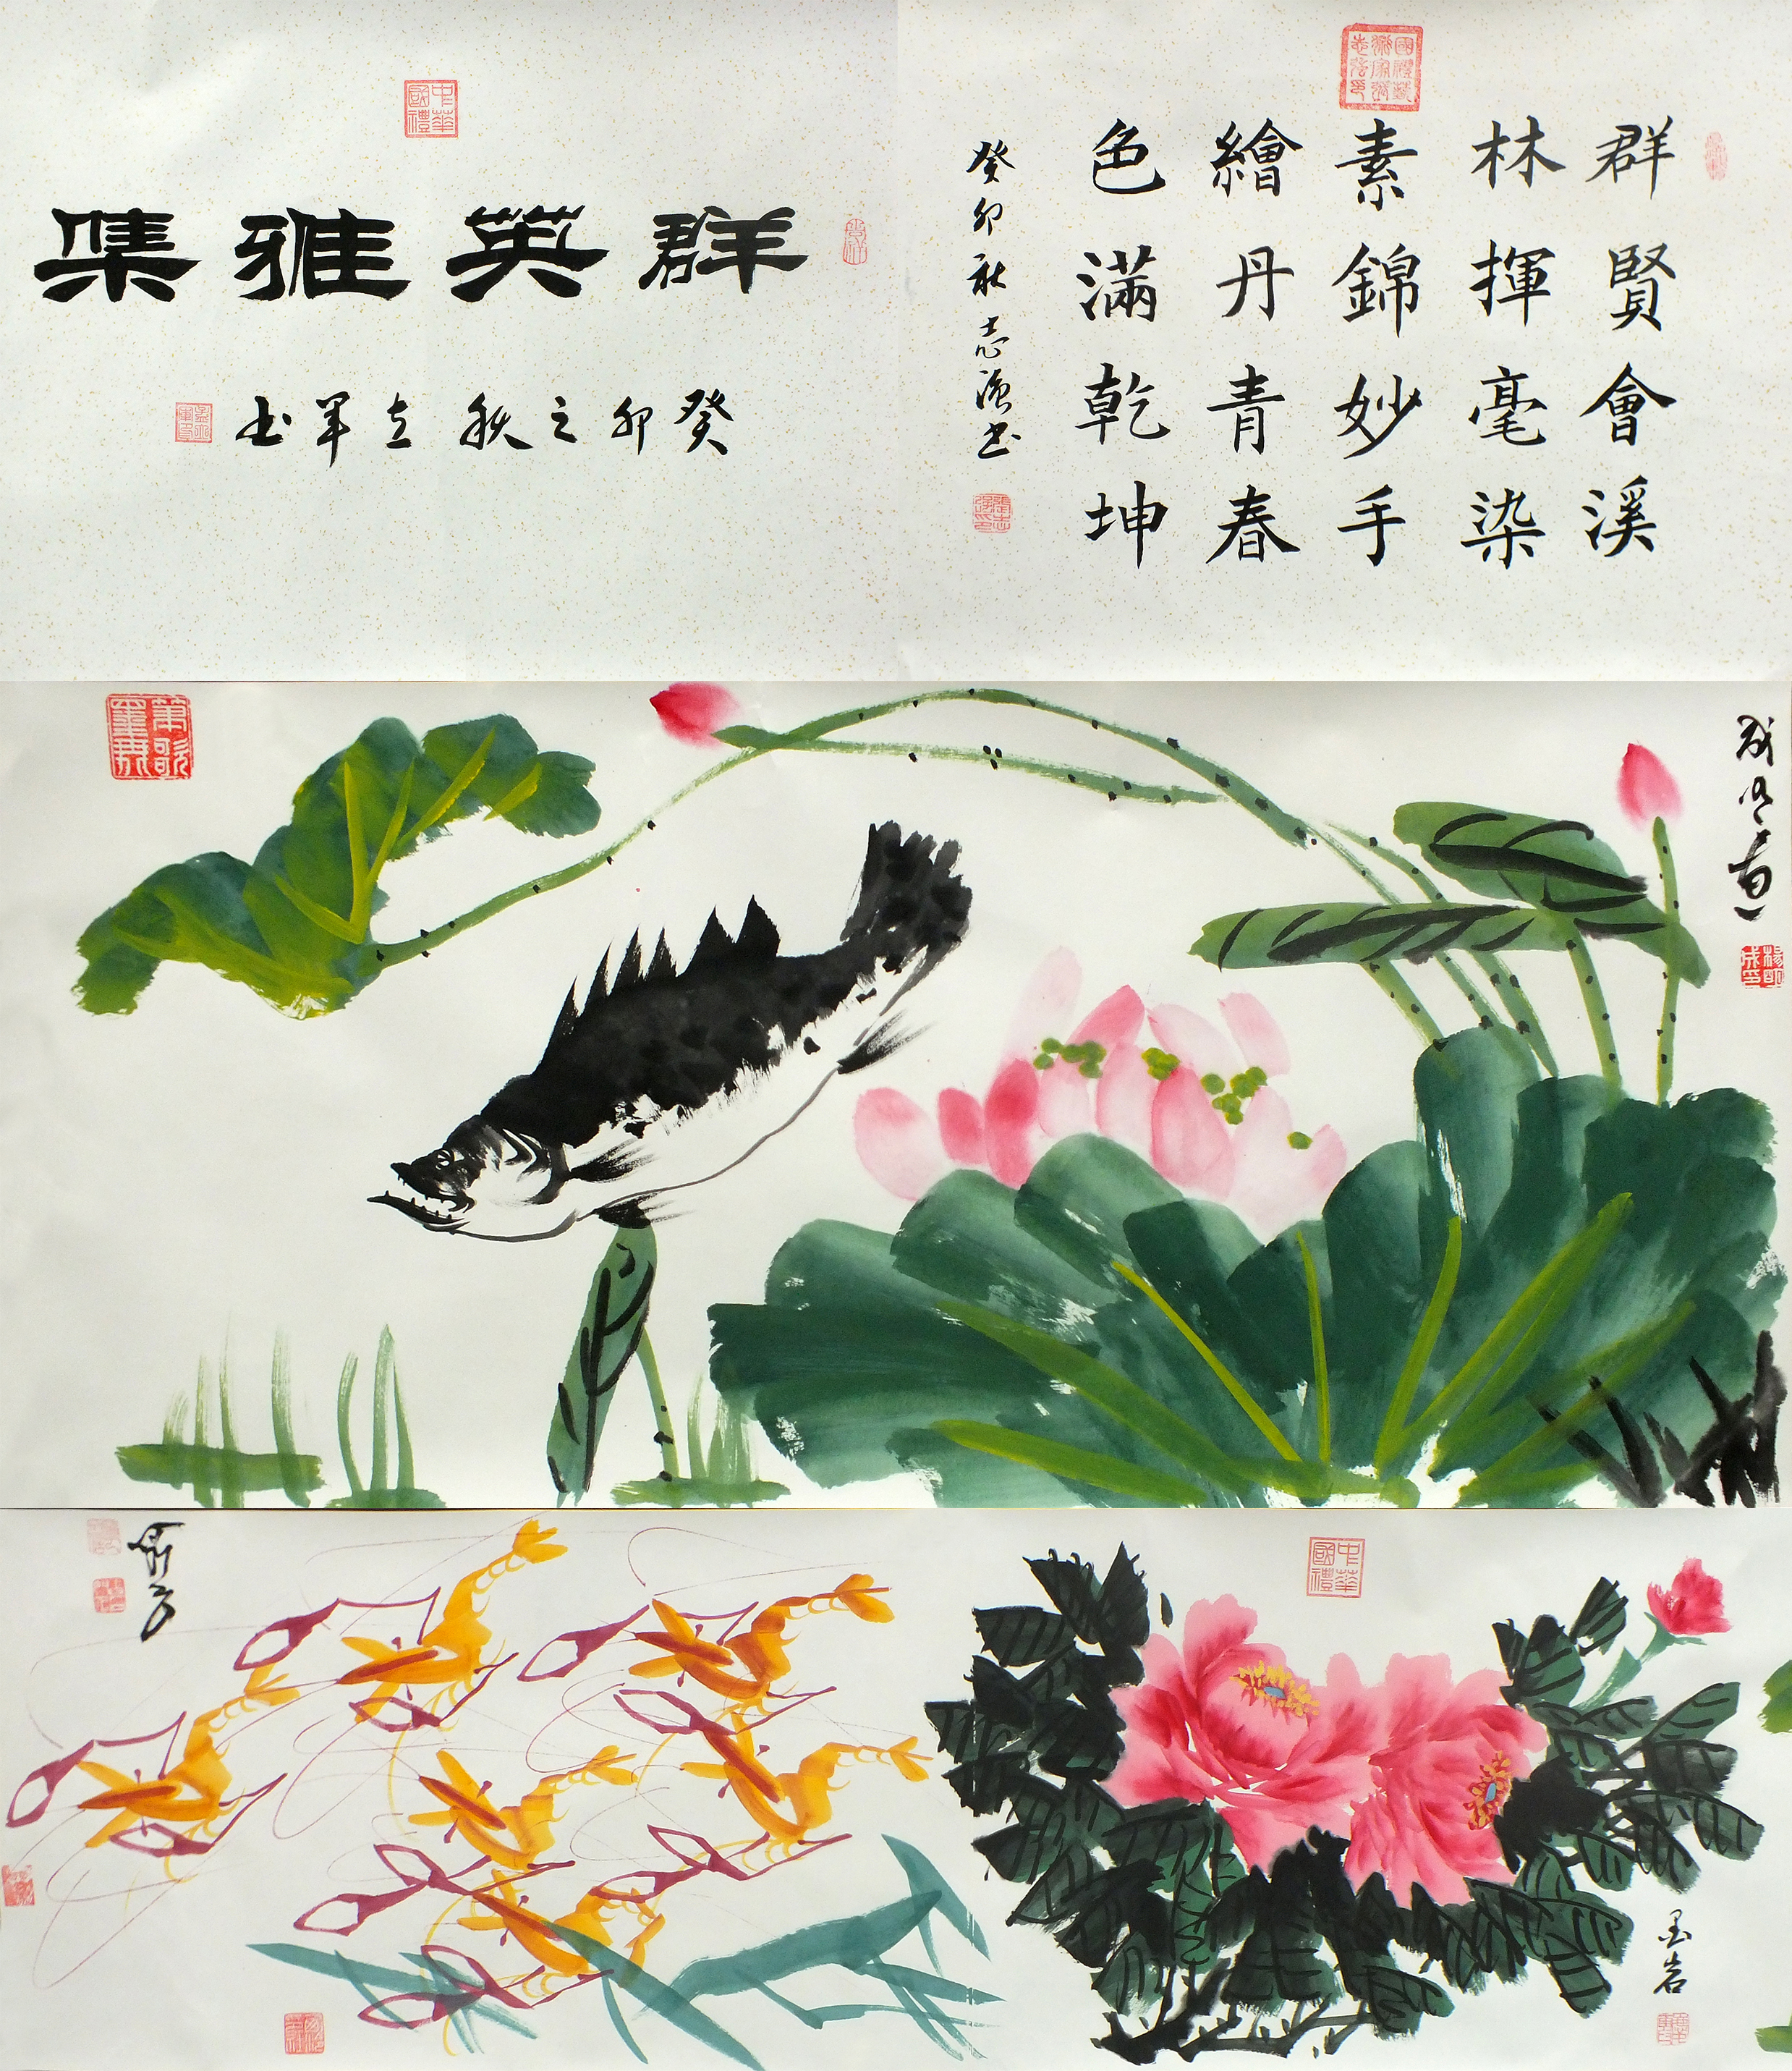 群英雅集
癸卯之秋 立军书
中華國禮
群賢會溪
林揮毫染
素錦妙手
繪丹青春
色滿乾坤
癸卯秋志强书
中華國禮
墨岩